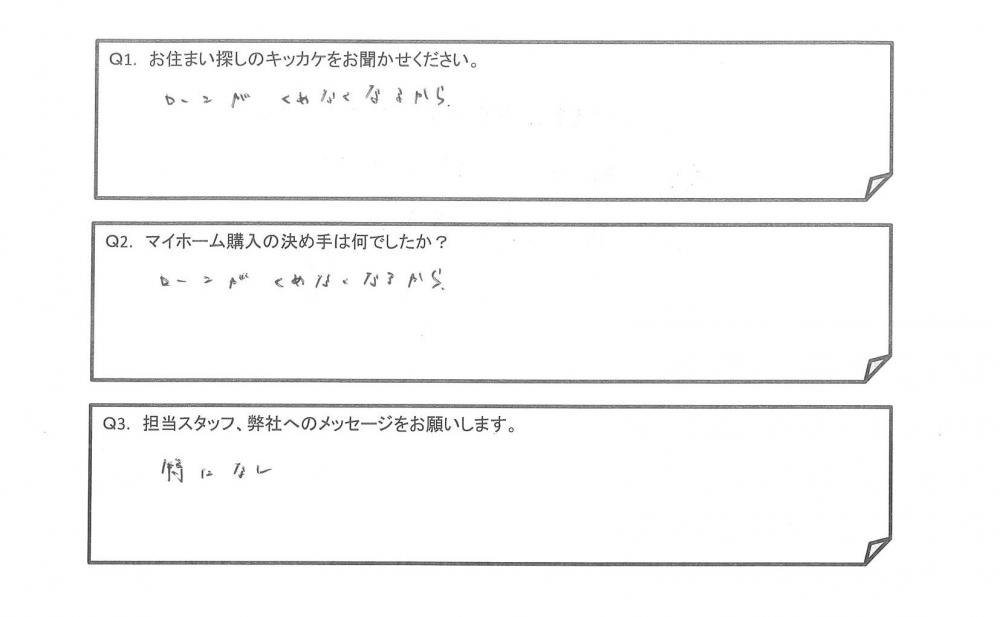 Q1. お住まい探しのキッカケをお聞かせください。
ローンが くめなくなるから.
Q2. マイホーム購入の決め手は何でしたか？
ローンが くめなくなるから.
Q3. 担当スタッフ、弊社へのメッセージをお願いします。
特になし